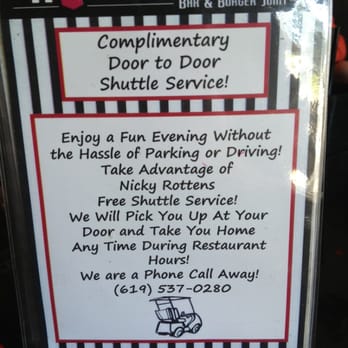 Bar & Burger Joint
Complimentary
Door to Door
Shuttle Service!
Enjoy a Fun Evening Without
the Hassle of Parking or Driving!
Take Advantage of
Nicky Rottens
Free Shuttle Service!
We Will Pick You Up At Your
Door and Take You Home
Any Time During Restaurant
Hours!
We are a Phone Call Away!
(619) 537-0280